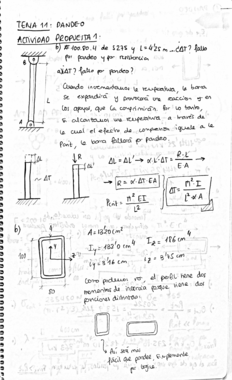 TEMA 11: PANDEO
ACTIVIDAD PROPUESTA 1.
b) # 100.80.4 de S275 y L= 4'25 m ¿ΔT? fallo
por pandeo y por resistencia
a) ¿ΔT? fallo por pandeo?
Cuando incrementamos la temperatura, la barra
se expandirá y provocará una reacción y en
los apoyos, que la comprimirán. Por lo tanto,
si alcanzamos una temperatura a través de
la cual el efecto de compresión iguale a la
Pcrit, la barra fallará por pandeo.
B
L
A
ΔL
R
ΔL'
ΔT
ΔL = ΔL' → α·L·ΔT = R·L / EA →
→ R = α·ΔT·EA
Pcrit = π² EI / L²
ΔT = π² I / L² α A
b)
4
100
80
y
z
A = 1320 cm²
Iy = 182'0 cm⁴
Iz = 186 cm⁴
iy = 3'16 cm
iz = 3'75 cm
Como podemos ver, el perfil tiene dos
momentos de inercia porque tiene dos
posiciones distintas.
Así será más
fácil que pandee, simplemente
por lógica